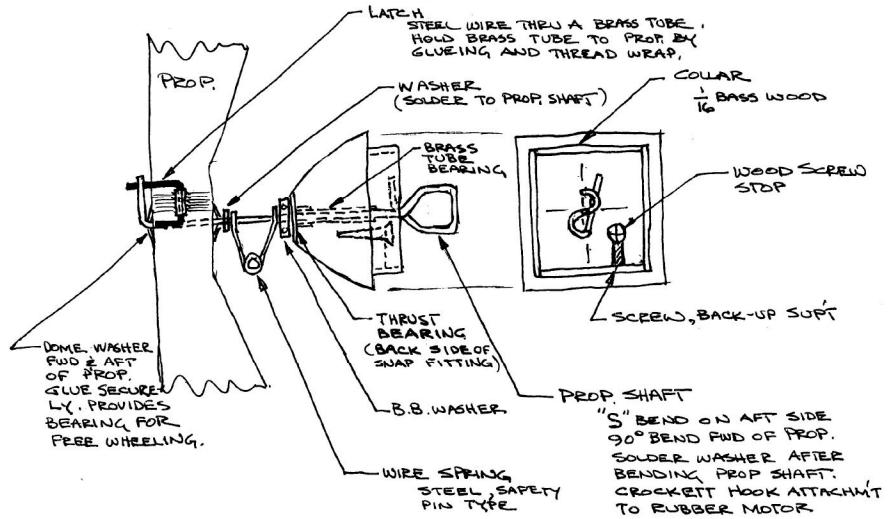 LATCH
STEEL WIRE THRU A BRASS TUBE.
HOLD BRASS TUBE TO PROP. BY
GLUEING AND THREAD WRAP.
PROP.
WASHER
(SOLDER TO PROP. SHAFT)
COLLAR
1/16 BASS WOOD
BRASS
TUBE
BEARING
WOOD SCREW
STOP
THRUST
BEARING
(BACK SIDE OF
SNAP FITTING)
SCREW, BACK-UP SUP'T
DOME WASHER
FWD & AFT
OF PROP.
GLUE SECURE-
LY. PROVIDES
BEARING FOR
FREE WHEELING.
B.B. WASHER
PROP. SHAFT
"S" BEND ON AFT SIDE
90° BEND FWD OF PROP.
SOLDER WASHER AFTER
BENDING PROP SHAFT.
CROCKETT HOOK ATTACHM'T
TO RUBBER MOTOR
WIRE SPRING
STEEL, SAFETY
PIN TYPE